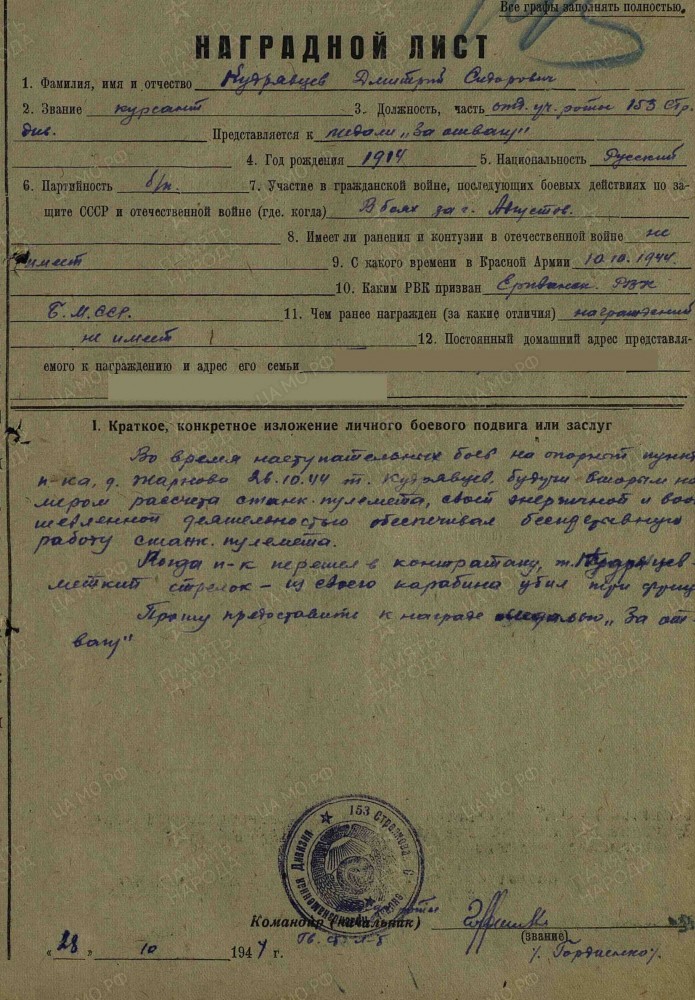 Все графы заполнять полностью.
НАГРАДНОЙ ЛИСТ
1. Фамилия, имя и отчество Кудрявцев Дмитрий Сидорович
2. Звание курсант 3. Должность, часть отд. уч. роты 153 Стр.
див. Представляется к медали „За отвагу"
4. Год рождения 1914 5. Национальность Русский
6. Партийность б/п. 7. Участие в гражданской войне, последующих боевых действиях по за-
щите СССР и отечественной войне (где, когда) В боях за г. Августов.
8. Имеет ли ранения и контузии в отечественной войне не
имеет 9. С какого времени в Красной Армии 10.10.1944.
10. Каким РВК призван РВК
11. Чем ранее награжден (за какие отличия) награждений
не имеет 12. Постоянный домашний адрес представля-
емого к награждению и адрес его семьи
I. Краткое, конкретное изложение личного боевого подвига или заслуг
Во время наступательных боев на опорной пункт
п-ка, д. Жарново 26.10.44 т. Кудрявцев, будучи вторым но
мером рассчета станк. пулемета, своей энергичной и воо
шевленной деятельностью обеспечивал
работу станк. пулемета.
Когда п-к перешел в контратаку, т. Кудрявцев-
меткий стрелок – из своего карабина убил три
Прошу предоставить к награде медалью „За от-
вагу"
153 Стрелковая
Дивизия
роты
Командир (начальник)
(звание)
/. Гордиенко/.
„28 " 10 1944 г.
ПАМЯТЬ НАРОДА
ЦА МО РФ